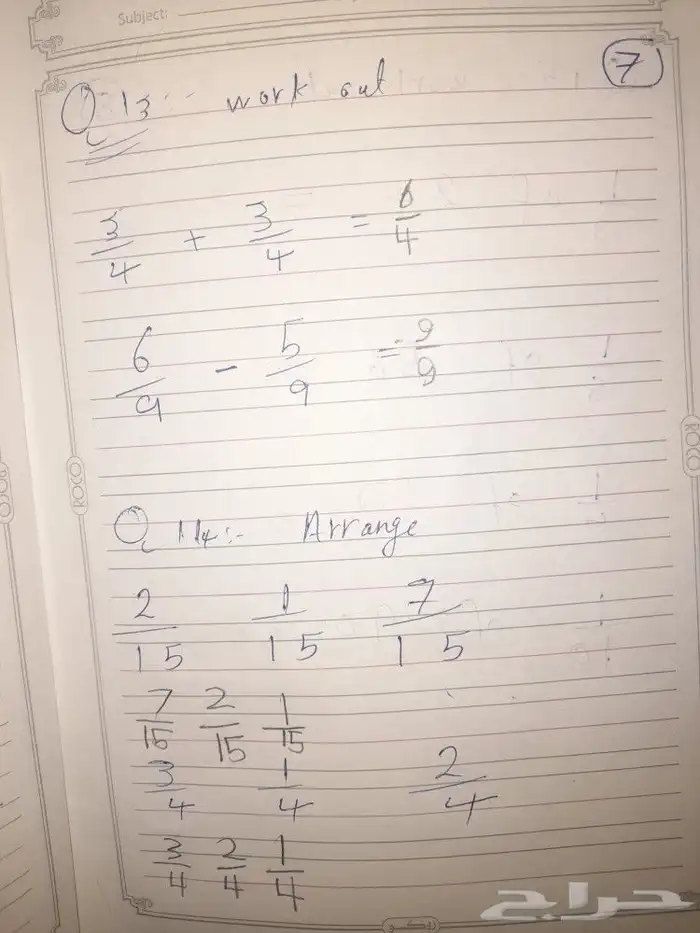 Subject:
Q 13:- work out
7
3/4 + 3/4 = 6/4
6/9 - 5/9 = 9/9
ROCO
ROCO
Q 14:- Arrange
2/15 1/15 7/15
7/15 2/15 1/15
3/4 1/4 2/4
3/4 2/4 1/4
حراج
روكو